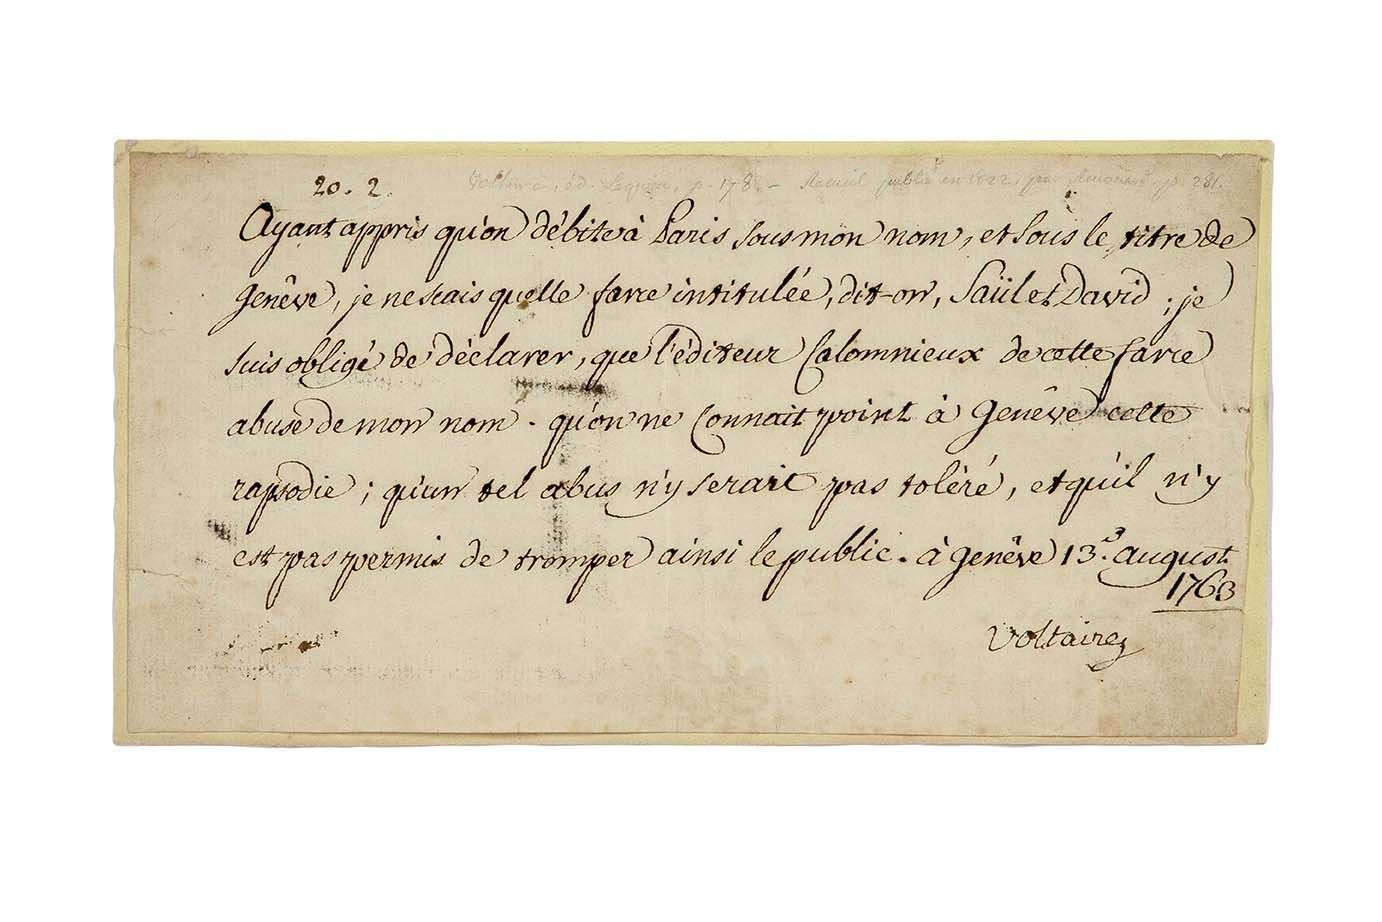 20. 2.
Voltaire, éd. Lequien, p. 178. - Recueil publié en 1822, par p. 281.
Ayant appris qu'on débite à Paris sous mon nom, et sous le titre de
Genêve, je ne scais quelle farce intitulée, dit-on, Saül et David ; je
suis obligé de déclarer, que l'éditeur Calomnieux de cette farce
abuse de mon nom. qu'on ne Connait point à Genêve cette
rapsodie ; qu'un tel abus n'y serait pas toléré, et qu'il n'y
est pas permis de tromper ainsi le public. à genêve 13.e august
1763
Voltaire